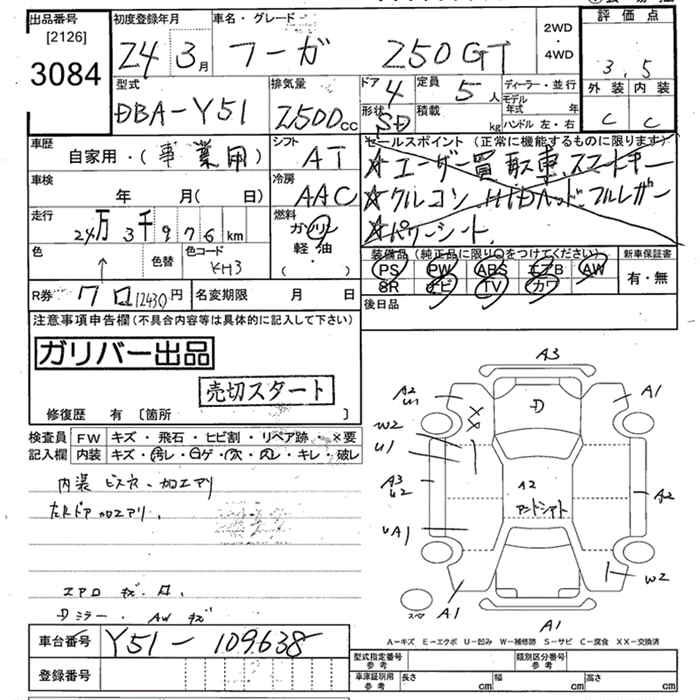 出品番号 初度登録年月 車名・グレード 2WD・4WD 評価点
[2126]
3084
24 3月 フーガ 250GT
3.5
型式 排気量 ドア 4 定員 5人 ディーラー・並行 外装 内装
DBA-Y51 2500cc 形状 SD 積載 kg モデル年式 年 ハンドル 左・右 C C
車歴 自家用・(事業用) シフト AT
セールスポイント(正常に機能するものに限ります)
☆ユーザー買取車、スマートキー
☆クルコン HIDヘッド、フルレザー
☆パワーシート
車検 年 月( 日) 冷房 AAC
走行 24万3千976km 燃料 ガソリン 軽・油 ( )
装備品(純正品に限り○をつけてください) 新車保証書
PS PW ABS エアB AW 有・無
SR ナビ TV カワ
色 ↑ 色替 色コード KH3
後日品
R券 7口12430円 名変期限 月 日
注意事項申告欄(不具合内容等は具体的に記入して下さい)
ガリバー出品
売切スタート
修復歴 有 [箇所 ]
検査員記入欄 FW キズ・飛石・ヒビ割・リペア跡・×要
内装 キズ・汚レ・コゲ・穴・スレ・キレ・破レ
内装 ビスアナ・加工アリ
左Rドア加工アリ
エアロ キズ・
Dミラー・AWキズ
A3
A2 U1 XX D A1
W2
U1
A3 U2 A2 アンドシャフト A2
UA1
W2
スペア A1 A1
A=キズ E=エクボ U=凹み W=補修跡 S=サビ C=腐食 XX=交換済
車台番号 Y51-109638
登録番号
型式指定番号 参考 類別区分番号 参考
車庫証明用 参考 長さ cm 幅 cm 高さ cm